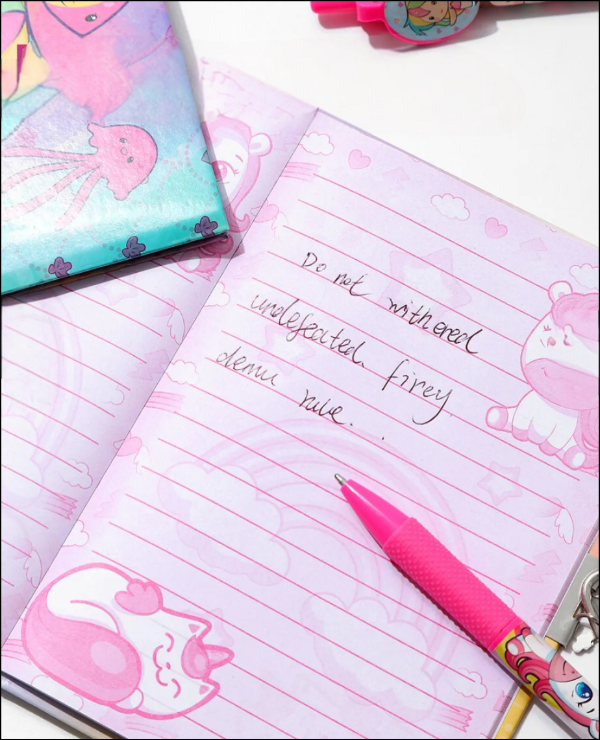 Do not withered
undefeated. firey
demu rule...